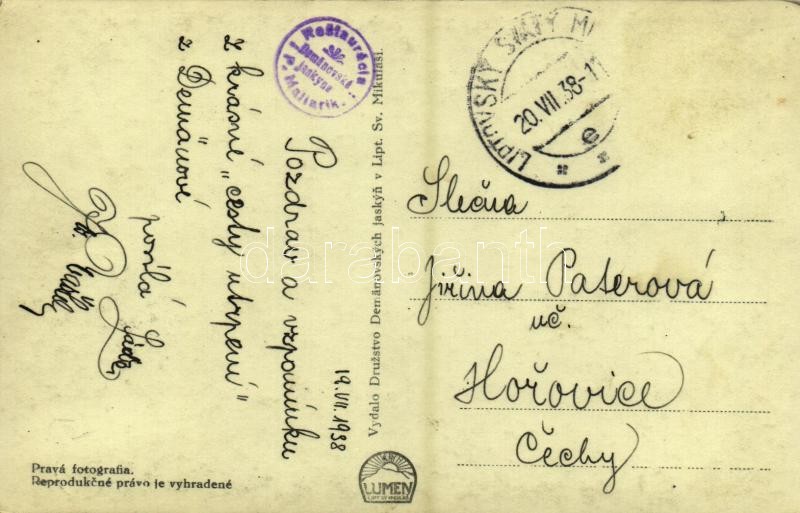 Reštaurácia
Demänovská
jaskyňa
P. Maliarik
LIPTOVSKÝ SVÄTÝ MI
20.VII.38-11
e
19.VII.1938
Pozdrav a vzpomínku
z krásné „cesty utrpení"
z Demänové
posílá
Vydalo Družstvo Demänovských jaskýň v Lipt. Sv. Mikuláši.
Slečna
Jiřina Paterová
uč.
Hořovice
Čechy
Pravá fotografia.
Reprodukčné právo je vyhradené
LUMEN
darabanth